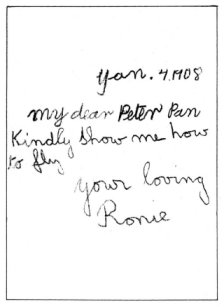 yan. 4.1908
my dear Peter Pan
Kindly show me how
to fly
your loving
Ronie